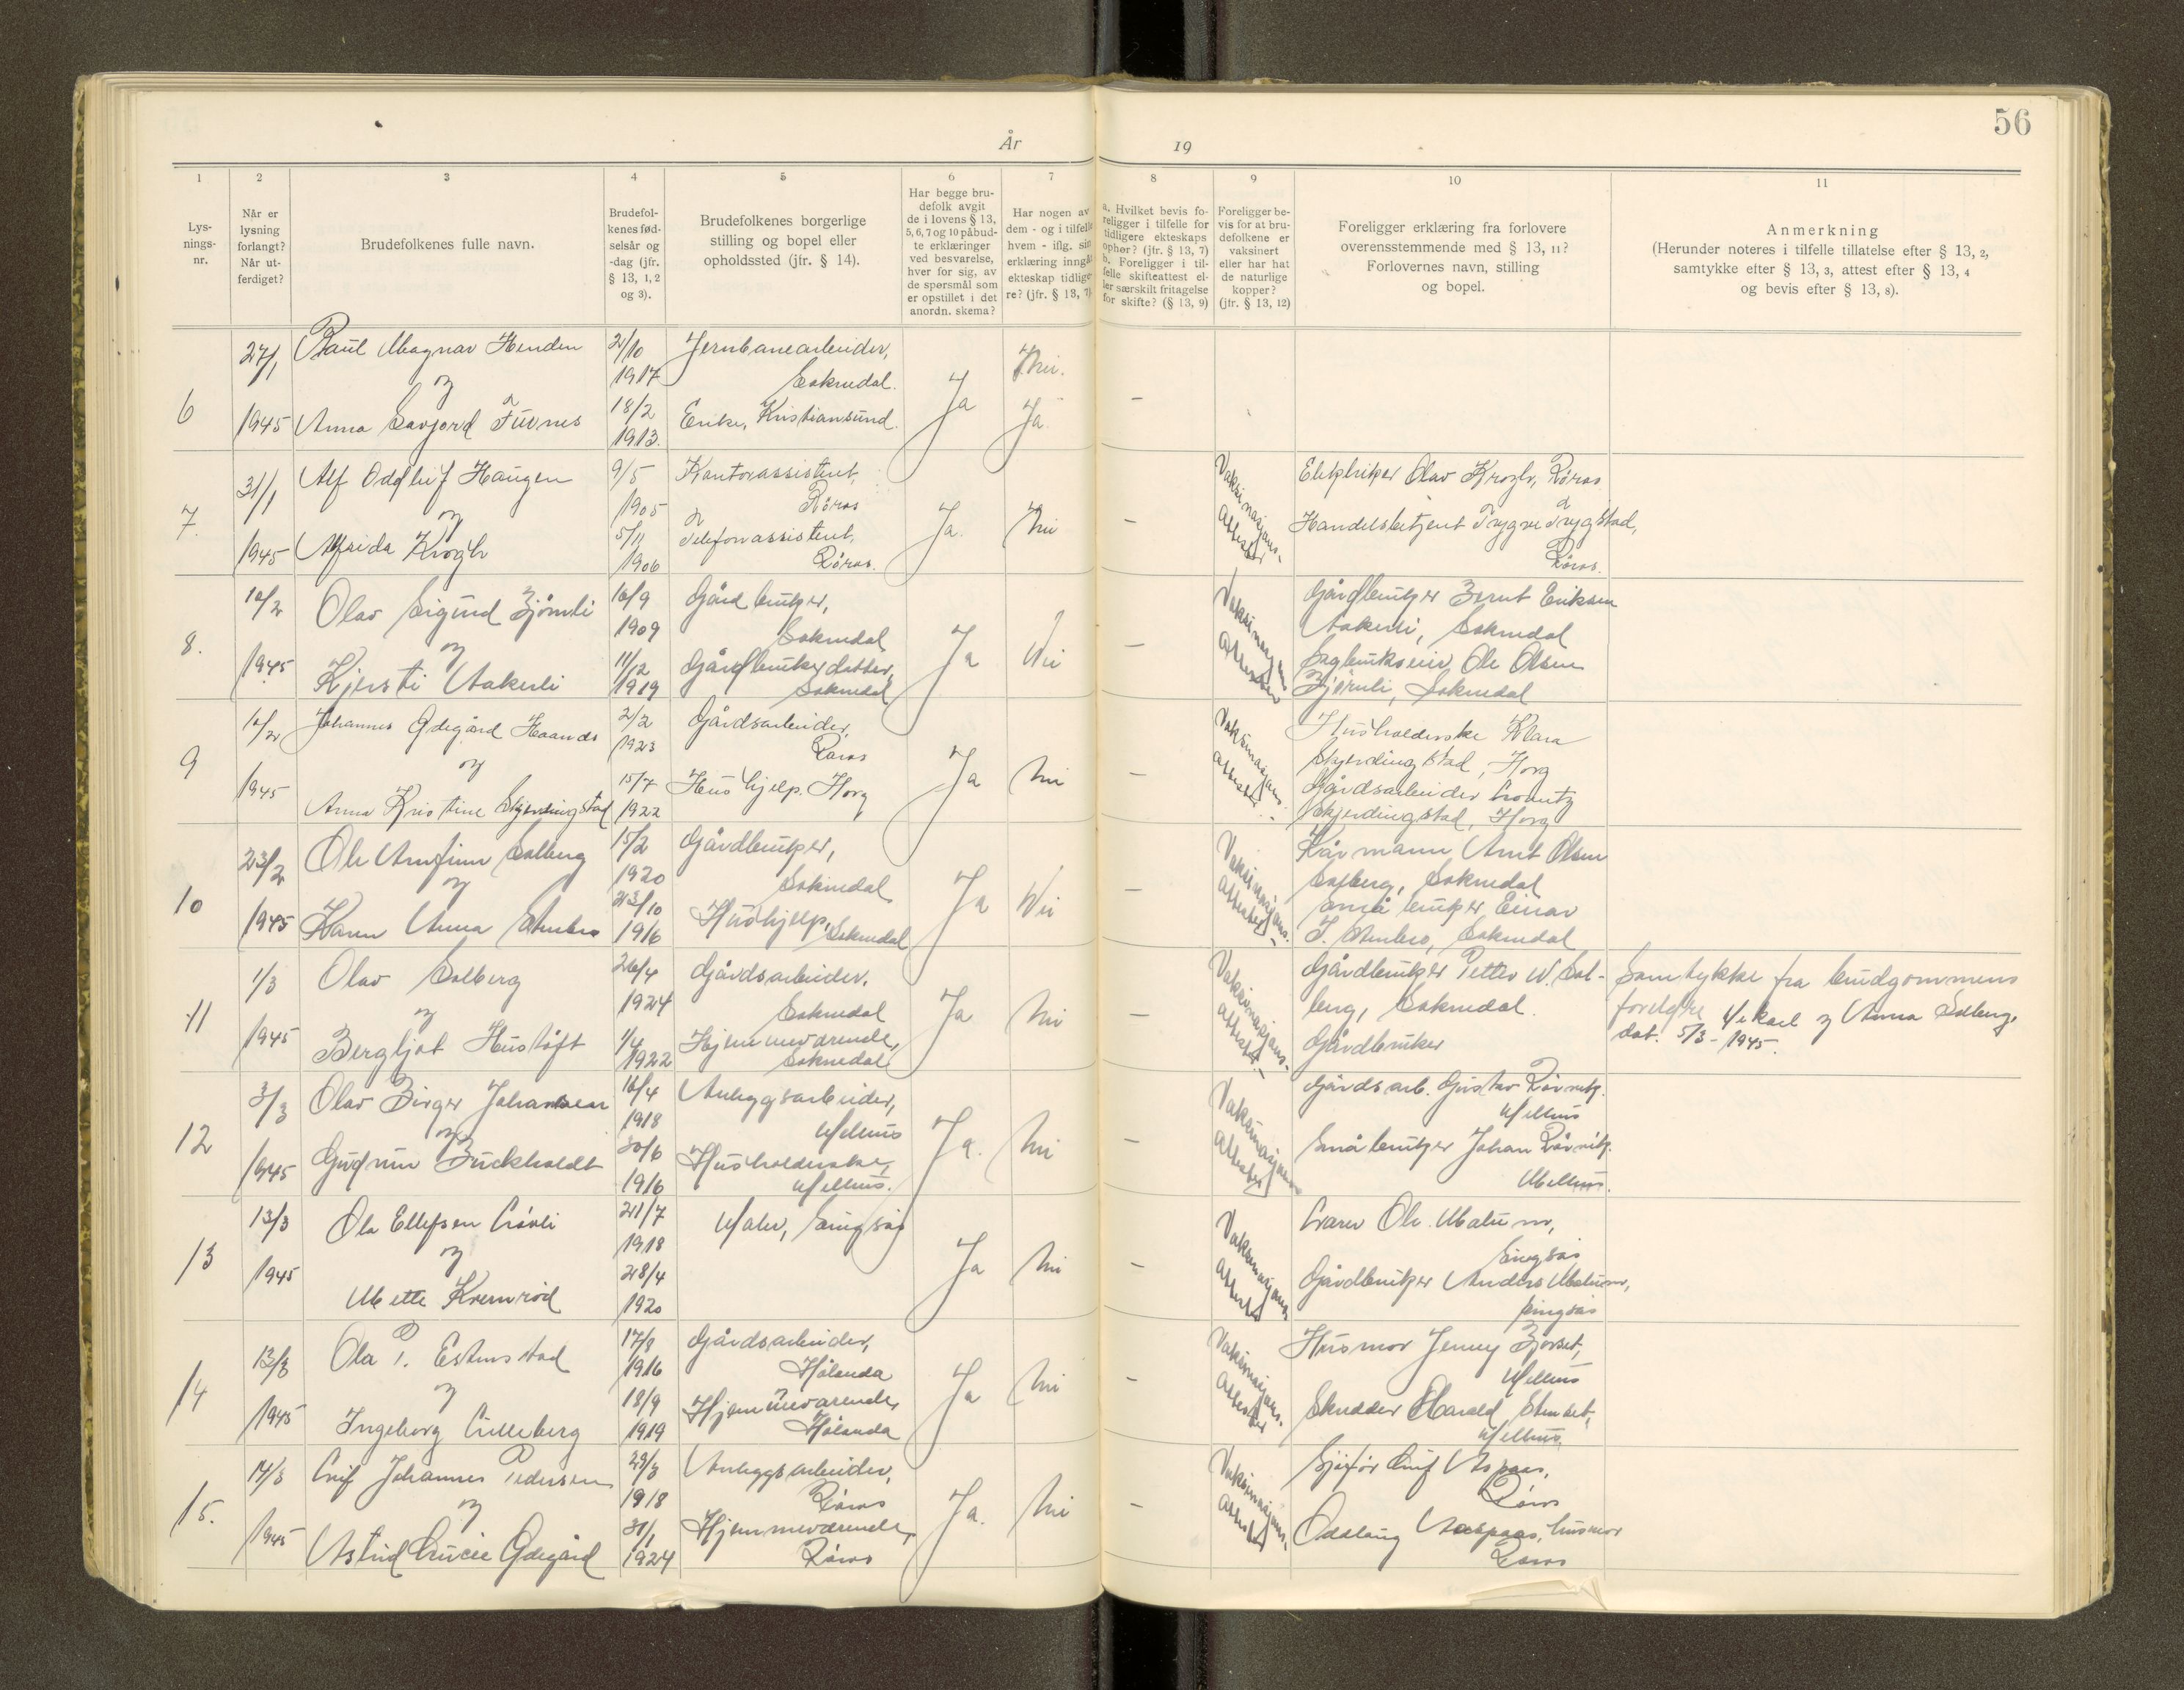 56
År
19
1
2
3
4
5
6
7
8
9
10
11
Lys-
nings-
nr.
Når er
lysning
forlangt?
Når ut-
ferdiget?
Brudefolkenes fulle navn.
Brudefol-
kenes fød-
selsår og
-dag (jfr.
§ 13, 1, 2
og 3).
Brudefolkenes borgerlige
stilling og bopel eller
opholdssted (jfr. § 14).
Har begge bru-
defolk avgit
de i lovens § 13,
5, 6, 7 og 10 påbud-
te erklæringer
ved besvarelse,
hver for sig, av
de spørsmål som
er opstillet i det
anordn. skema?
Har nogen av
dem - og i tilfelle
hvem - iflg. sin
erklæring inngåt
ekteskap tidlige-
re? (jfr. § 13, 7)
a. Hvilket bevis fo-
religger i tilfelle for
tidligere ekteskaps
ophør? (jfr. § 13, 7)
b. Foreligger i til-
felle skifteattest el-
ler særskilt fritagelse
for skifte? (§ 13, 9)
Foreligger be-
vis for at bru-
defolkene er
vaksinert
eller har hat
de naturlige
kopper?
(jfr. § 13, 12)
Foreligger erklæring fra forlovere
overensstemmende med § 13, 11?
Forlovernes navn, stilling
og bopel.
Anmerkning
(Herunder noteres i tilfelle tillatelse efter § 13, 2,
samtykke efter § 13, 3, attest efter § 13, 4
og bevis efter § 13, 8).
6
27/1
1945
Paul Magnar Henden
og
Anna Savjord Tüvnes
2/10
1917
18/2
1913.
Jernbanearbeider,
Soknedal.
Enke, Kristiansund.
Ja
Nei.
Ja
-
7.
31/1
1945
Alf Oddleif Haugen
og
Alfrida Krogh
9/5
1905
5/11
1906
Kontorassistent,
Röros
Telefonassistent,
Röros.
Ja.
Nei
-
Vaksinasjons-
attester
Elektriker Olav Krogh, Röros
Handelsbetjent Trygve Trygstad,
Röros.
8.
10/2
1945
Olav Sigurd Bjørnli
og
Kjersti Aakerli
16/9
1909
11/12
1919
Gårdbruker,
Soknedal
Gårdbrukerdatter,
Soknedal
Ja
Nei
-
Vaksinasjons
attester
Gårdbruker Bernt Eriksen
Aakerli, Soknedal
Sagbrukseier Ole Olsen
Bjørnli, Soknedal
9
10/2
1945
Johannes Ødegård Haanes
og
Anna Kristine Skjerdingstad
2/2
1923
15/7
1922
Gårdsarbeider,
Röros
Hushjelp. Horg
Ja
Nei
-
Vaksinasjons.
attester
Husholderske Klara
Skjerdingstad, Horg
Gårdsarbeider Lorentz
Skjerdingstad, Horg
10
23/2
1945
Ole Arnfinn Solberg
og
Karen Anna
15/2
1920
23/10
1916
Gårdbruker,
Soknedal
Hushjelp,
Soknedal
Ja
Nei
-
Vaksinasjons.
attester
Kårmann Arnt Olsen
Solberg, Soknedal
Småbruker Einar
Soknedal
11
1/3
1945
Olav Solberg
og
Bergljot Hustøft
26/4
1924
1/4
1922
Gårdsarbeider.
Soknedal
Hjemmeværende,
Soknedal
Ja
Nei
-
Vaksinasjons-
attester
Gårdbruker Petter N. Sol-
berg, Soknedal.
Gårdbruker
Samtykke fra brudgommens
foreldre Mekael og Anna Solberg,
dat. 5/3 - 1945.
12
3/3
1945
Olav Birger Johansen
og
Gudrun Buckholdt
16/4
1918
30/6
1916
Anleggsarbeider,
Melhus
Husholderske,
Melhus.
Ja.
Nei
-
Vaksinasjons
attester
Gårdsarb. Gustav
Melhus
Småbruker Johan
Melhus.
13
13/3
1945
Ola Ellefsen Løvli
og
Mette Kvernrød
21/7
1918
28/4
1920
Maler, Singsås
Ja
Nei
-
Vaksinasjons
attester
Ole
Singsås
Gårdbruker Anders
Singsås
14
13/3
1945
Ola P. Estenstad
og
Ingeborg Lilleberg
17/8
1916
18/9
1919
Gårdsarbeider,
Hølonda
Hjemmeværende,
Hølonda
Ja
Nei
-
Vaksinasjons.
attester
Husmor Jenny Borset,
Melhus
Skredder Harald Stenset,
Melhus.
15.
14/3
1945
Leif Johannes Pedersen
og
Astrid Lucie Ødegård
29/3
1918
31/1
1924
Anleggsarbeider,
Röros
Hjemmeværende,
Röros
Ja.
Nei
-
Vaksinasjons.
attester
Sjåfør Leif Aspaas,
Röros
Oddlaug Aaspaas, husmor
Röros